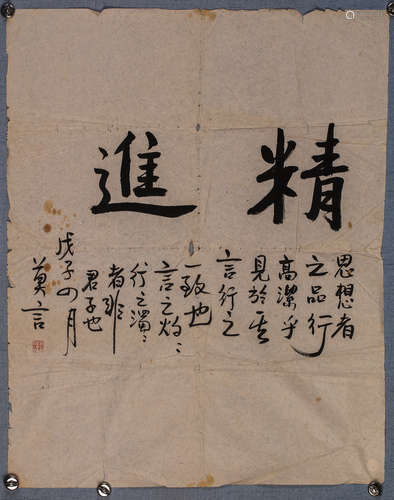 精進
思想者
之品行
高潔乎
見於其
言行之
一致也
言之灼灼
行之濁濁
者非
君子也
戊子四月
莫言